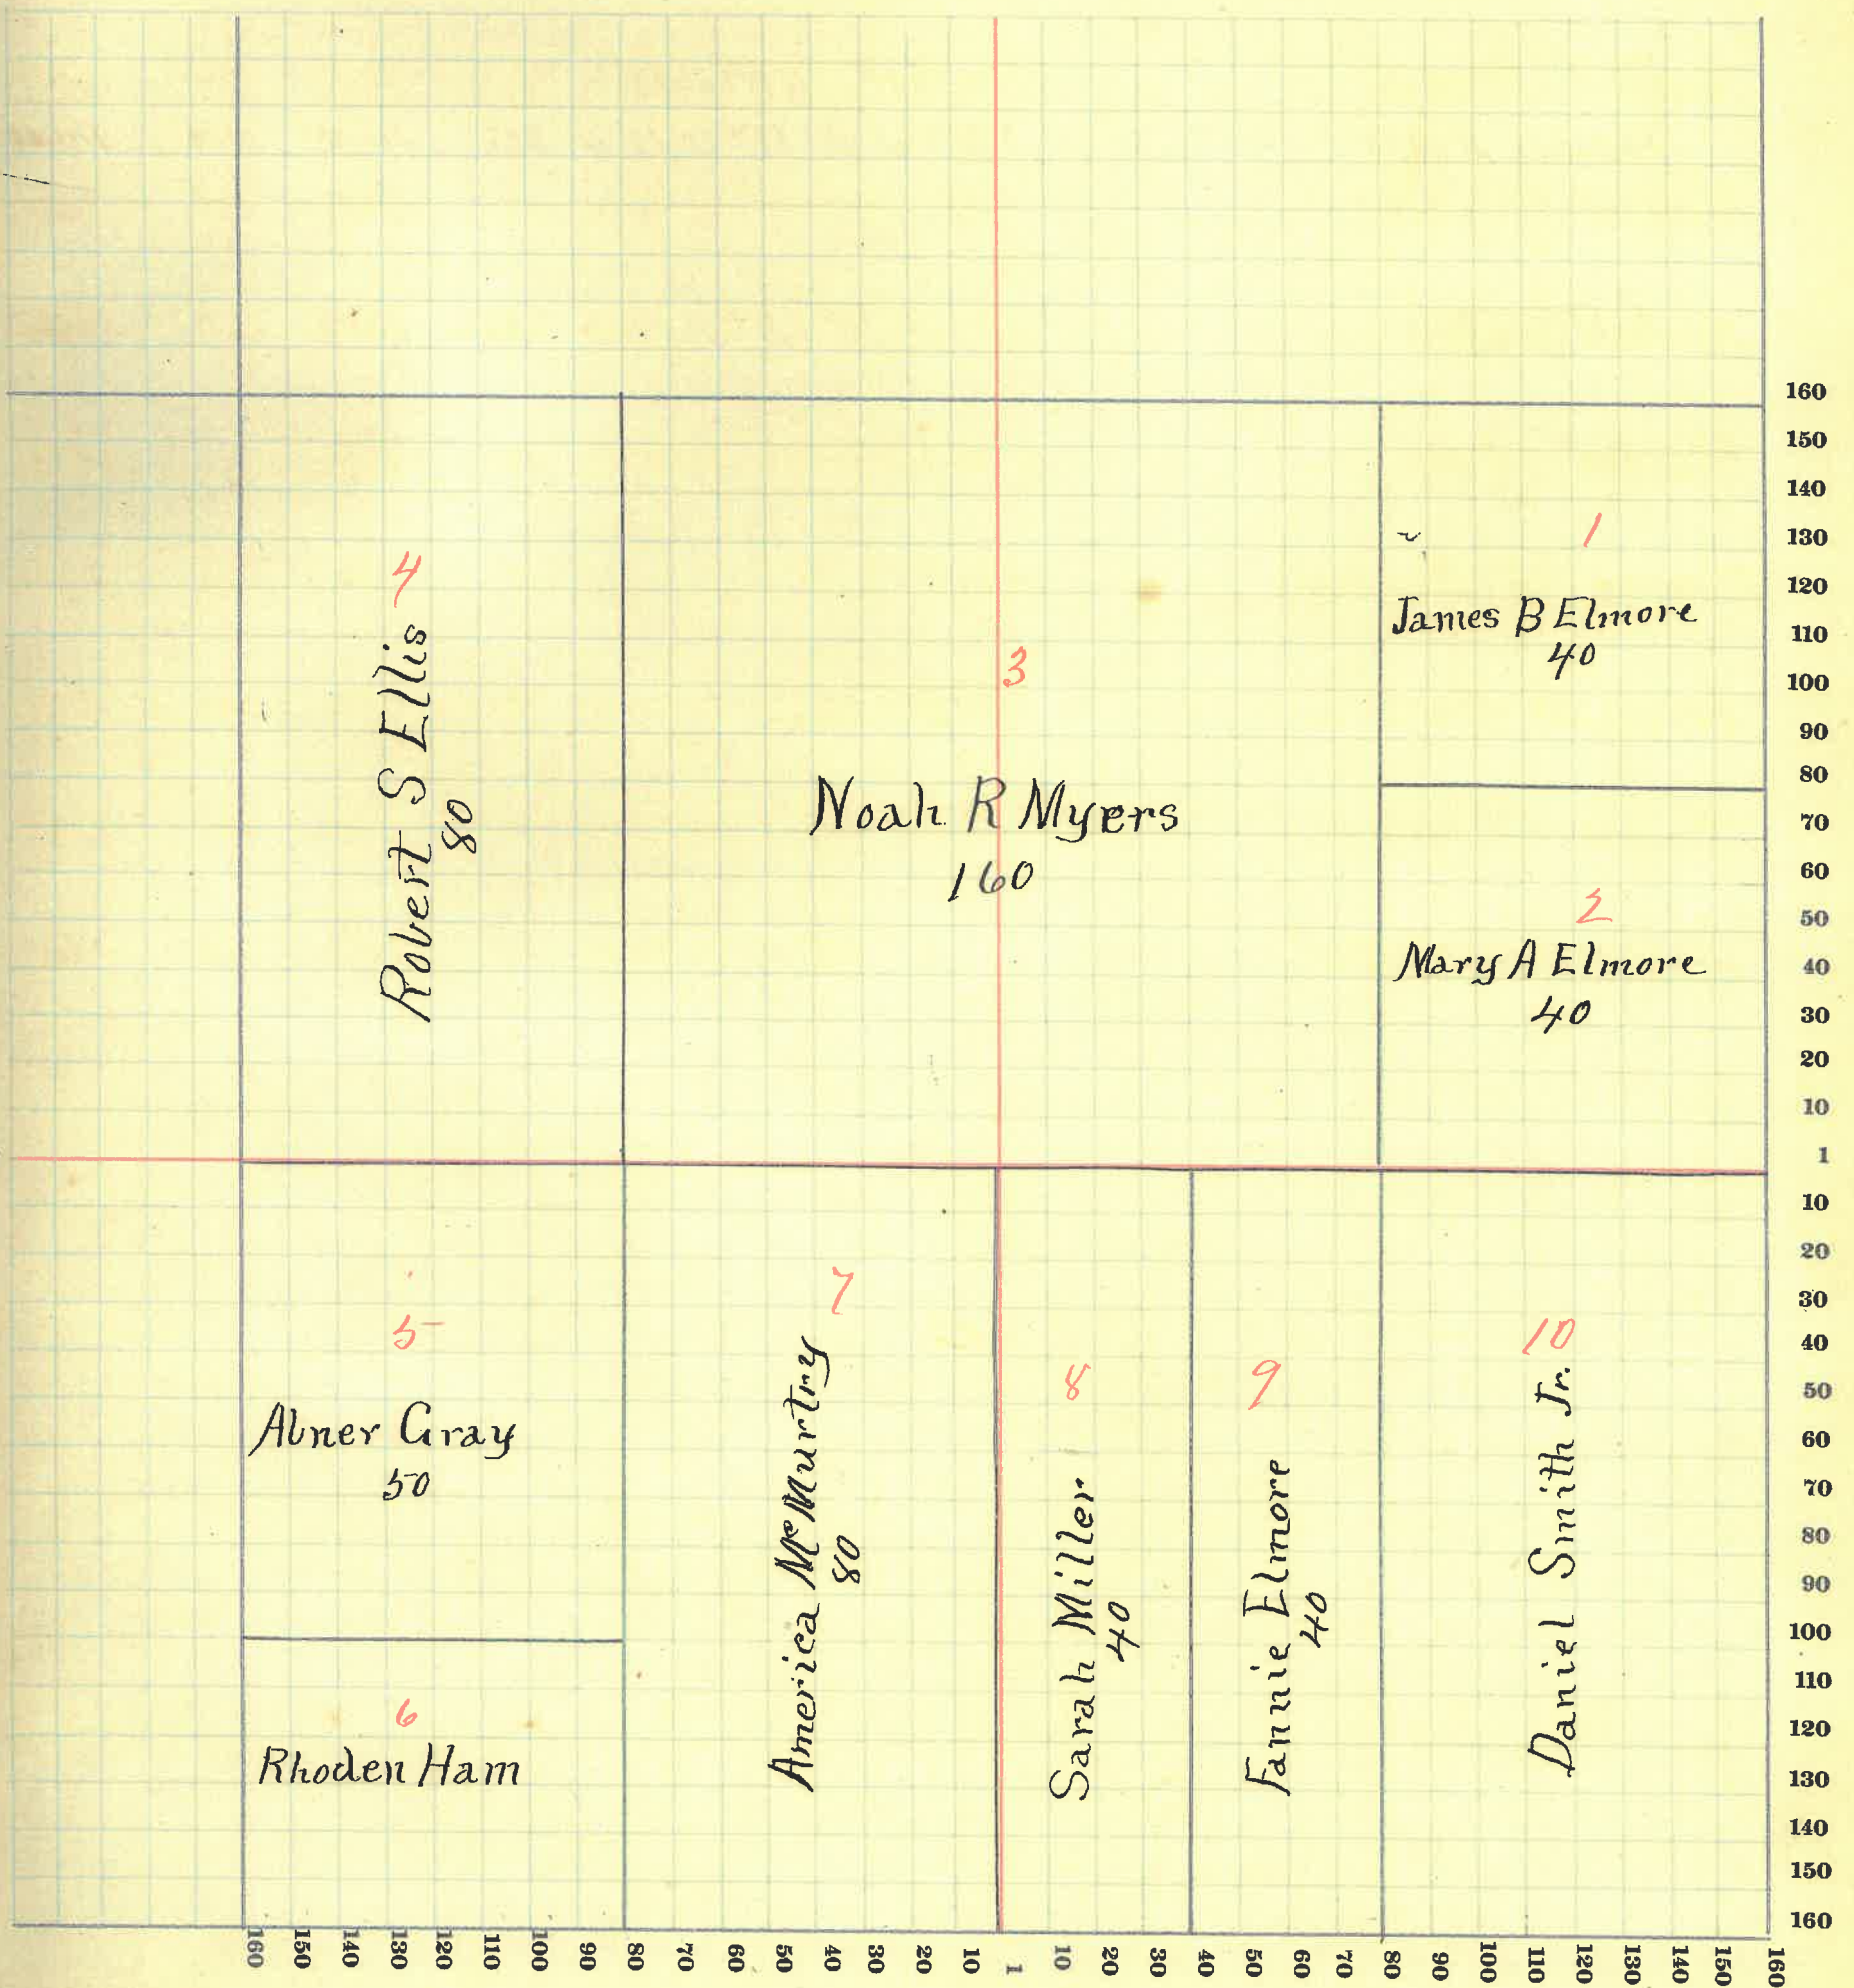 1
James B Elmore
40
2
Mary A Elmore
40
3
Noah R Myers
160
4
Robert S Ellis
80
5
Abner Gray
50
6
Rhoden Ham
7
America McMurtry
80
8
Sarah Miller
40
9
Fannie Elmore
40
10
Daniel Smith Jr.
160
150
140
130
120
110
100
90
80
70
60
50
40
30
20
10
1
10
20
30
40
50
60
70
80
90
100
110
120
130
140
150
160
160 150 140 130 120 110 100 90 80 70 60 50 40 30 20 10 1 10 20 30 40 50 60 70 80 90 100 110 120 130 140 150 160